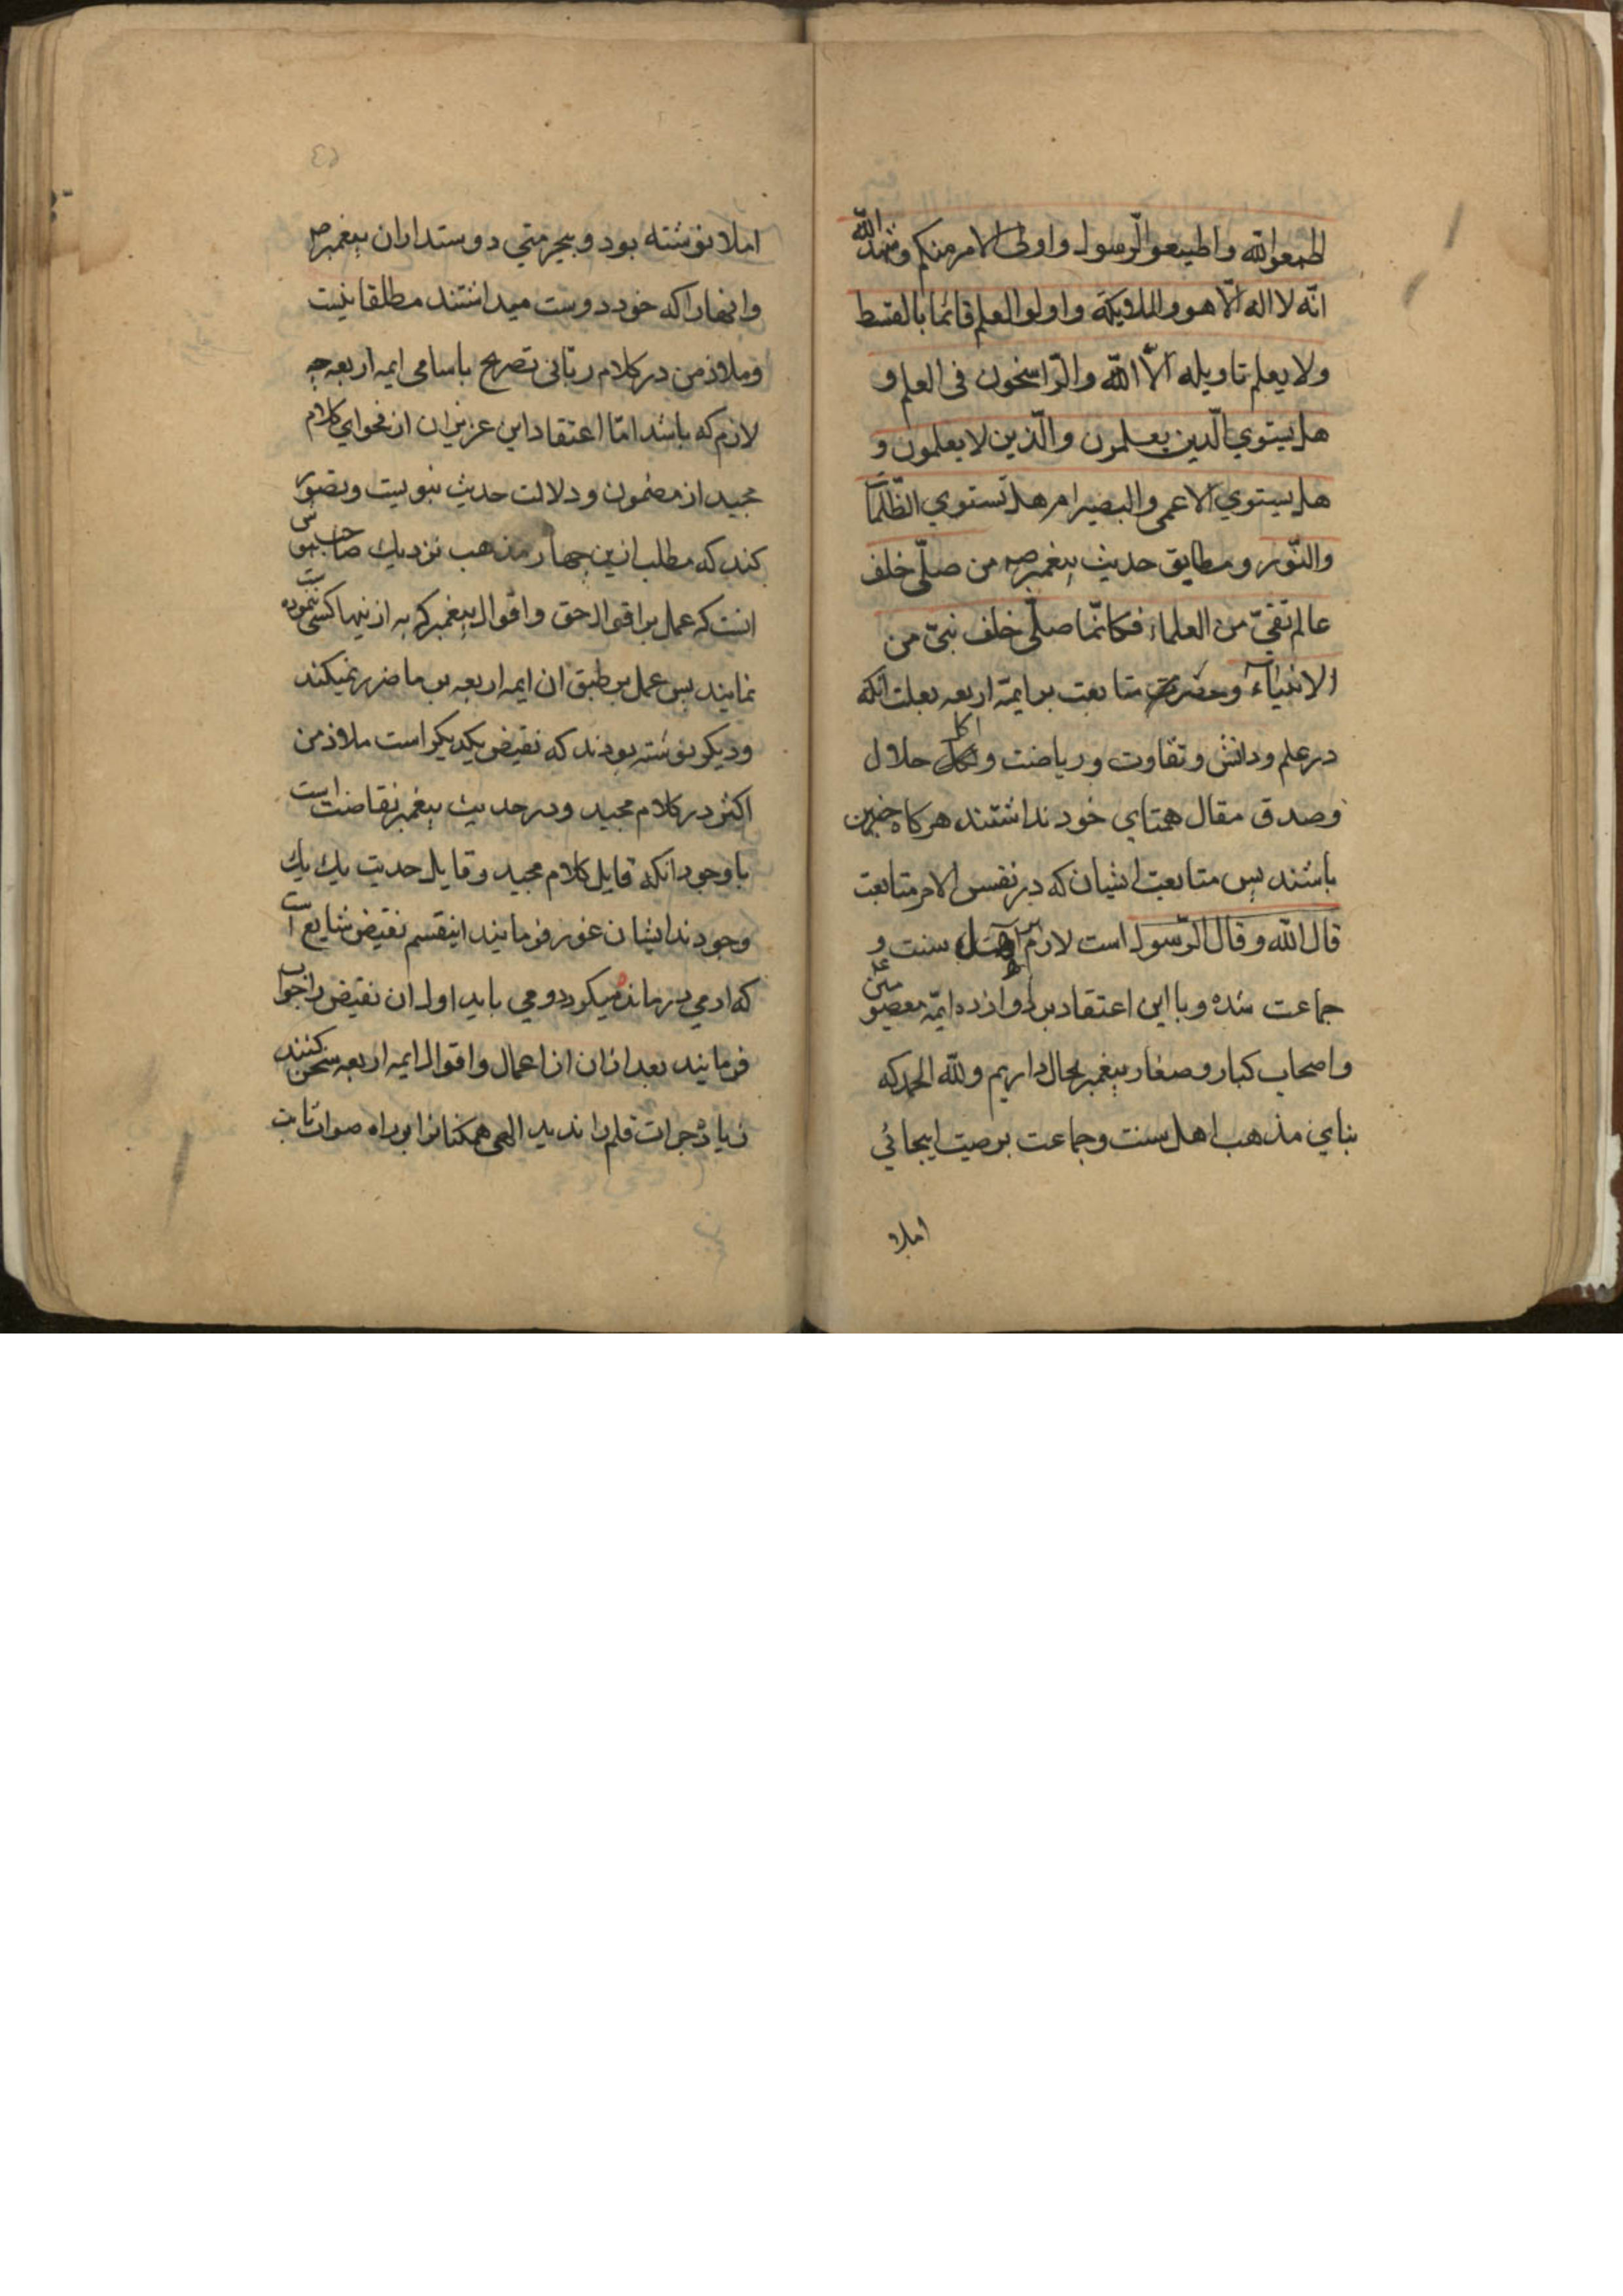 اطیعوالله واطیعوالرسول واولی الامر منکم وشهد الله
انّه لا اله الّا هو والملایکة واولوا العلم قائما بالقسط
ولا یعلم تاویله الّا الله والرّاسخون فی العلم و
هل یستوي الّذین یعلمون والّذین لا یعلمون و
هل یستوي الاعمی والبصیر ام هل تستوي الظّلمات
والنّور و مطابق حدیث پیغمبر ص من صلّی خلف
عالم تقیّ من العلماء فکانّما صلّی خلف نبیّ من
الانبیاء متابعت بر ایمّه اربعه بعلت انکه
در علم و دانش و تقاوت و ریاضت و اکل حلال
وصدق مقال همتاي خود نداشتند هرکاه چنین
باشند پس متابعت ایشان که در نفس الامر متابعت
قال الله و قال الرّسول است لازم بر اهل سنت و
جماعت شده و با این اعتقاد بر دوازده ایمّه معصومین
واصحاب کبار و صغار پیغمبر بحال داریم ولله الحمد که
بناي مذهب اهل سنت وجماعت بر صیت ایجائي
املا
٤٥
املا نوشته بود و بیحرمتي دوستداران پیغمبر ص
وانهارا که خود دوست میداشتند مطلقا نیست
وملاذ من در کلام ربّانی تصریح باسامی ایمه اربعه چه
لازم که باشد امّا اعتقاد این عزیزان از فحواي کلام
مجید از مضمون و دلالت حدیث نبویست وتصور
کند که مطلب ازین چهار مذهب نزدیك صاحب هوش
انست که عمل بر اقوال حق و اقوال پیغمبر که به از نیها کسی ننموده است
نمایند پس عمل بر طبق ان ایمه اربعه بر ما ضرر نمیکند
ودیکر نوشته بودند که نقیض یکدیکر است ملاذ من
اکثر در کلام مجید و در حدیث پیغمبر نقاضت است
با وجود انکه قایل کلام مجید و قایل حدیث یك یك
وجودند ایشان غور فرمایند اینقسم نقیض شایع است
که ادمي درمانده میکردد و می باید اول ان نقیض را جواب
فرمایند بعد ازان از اعمال واقوال ایمه اربعه سخن کنند
زیاده جرات قلم راندید الهی همکنانرا بر راه صواب ثابت